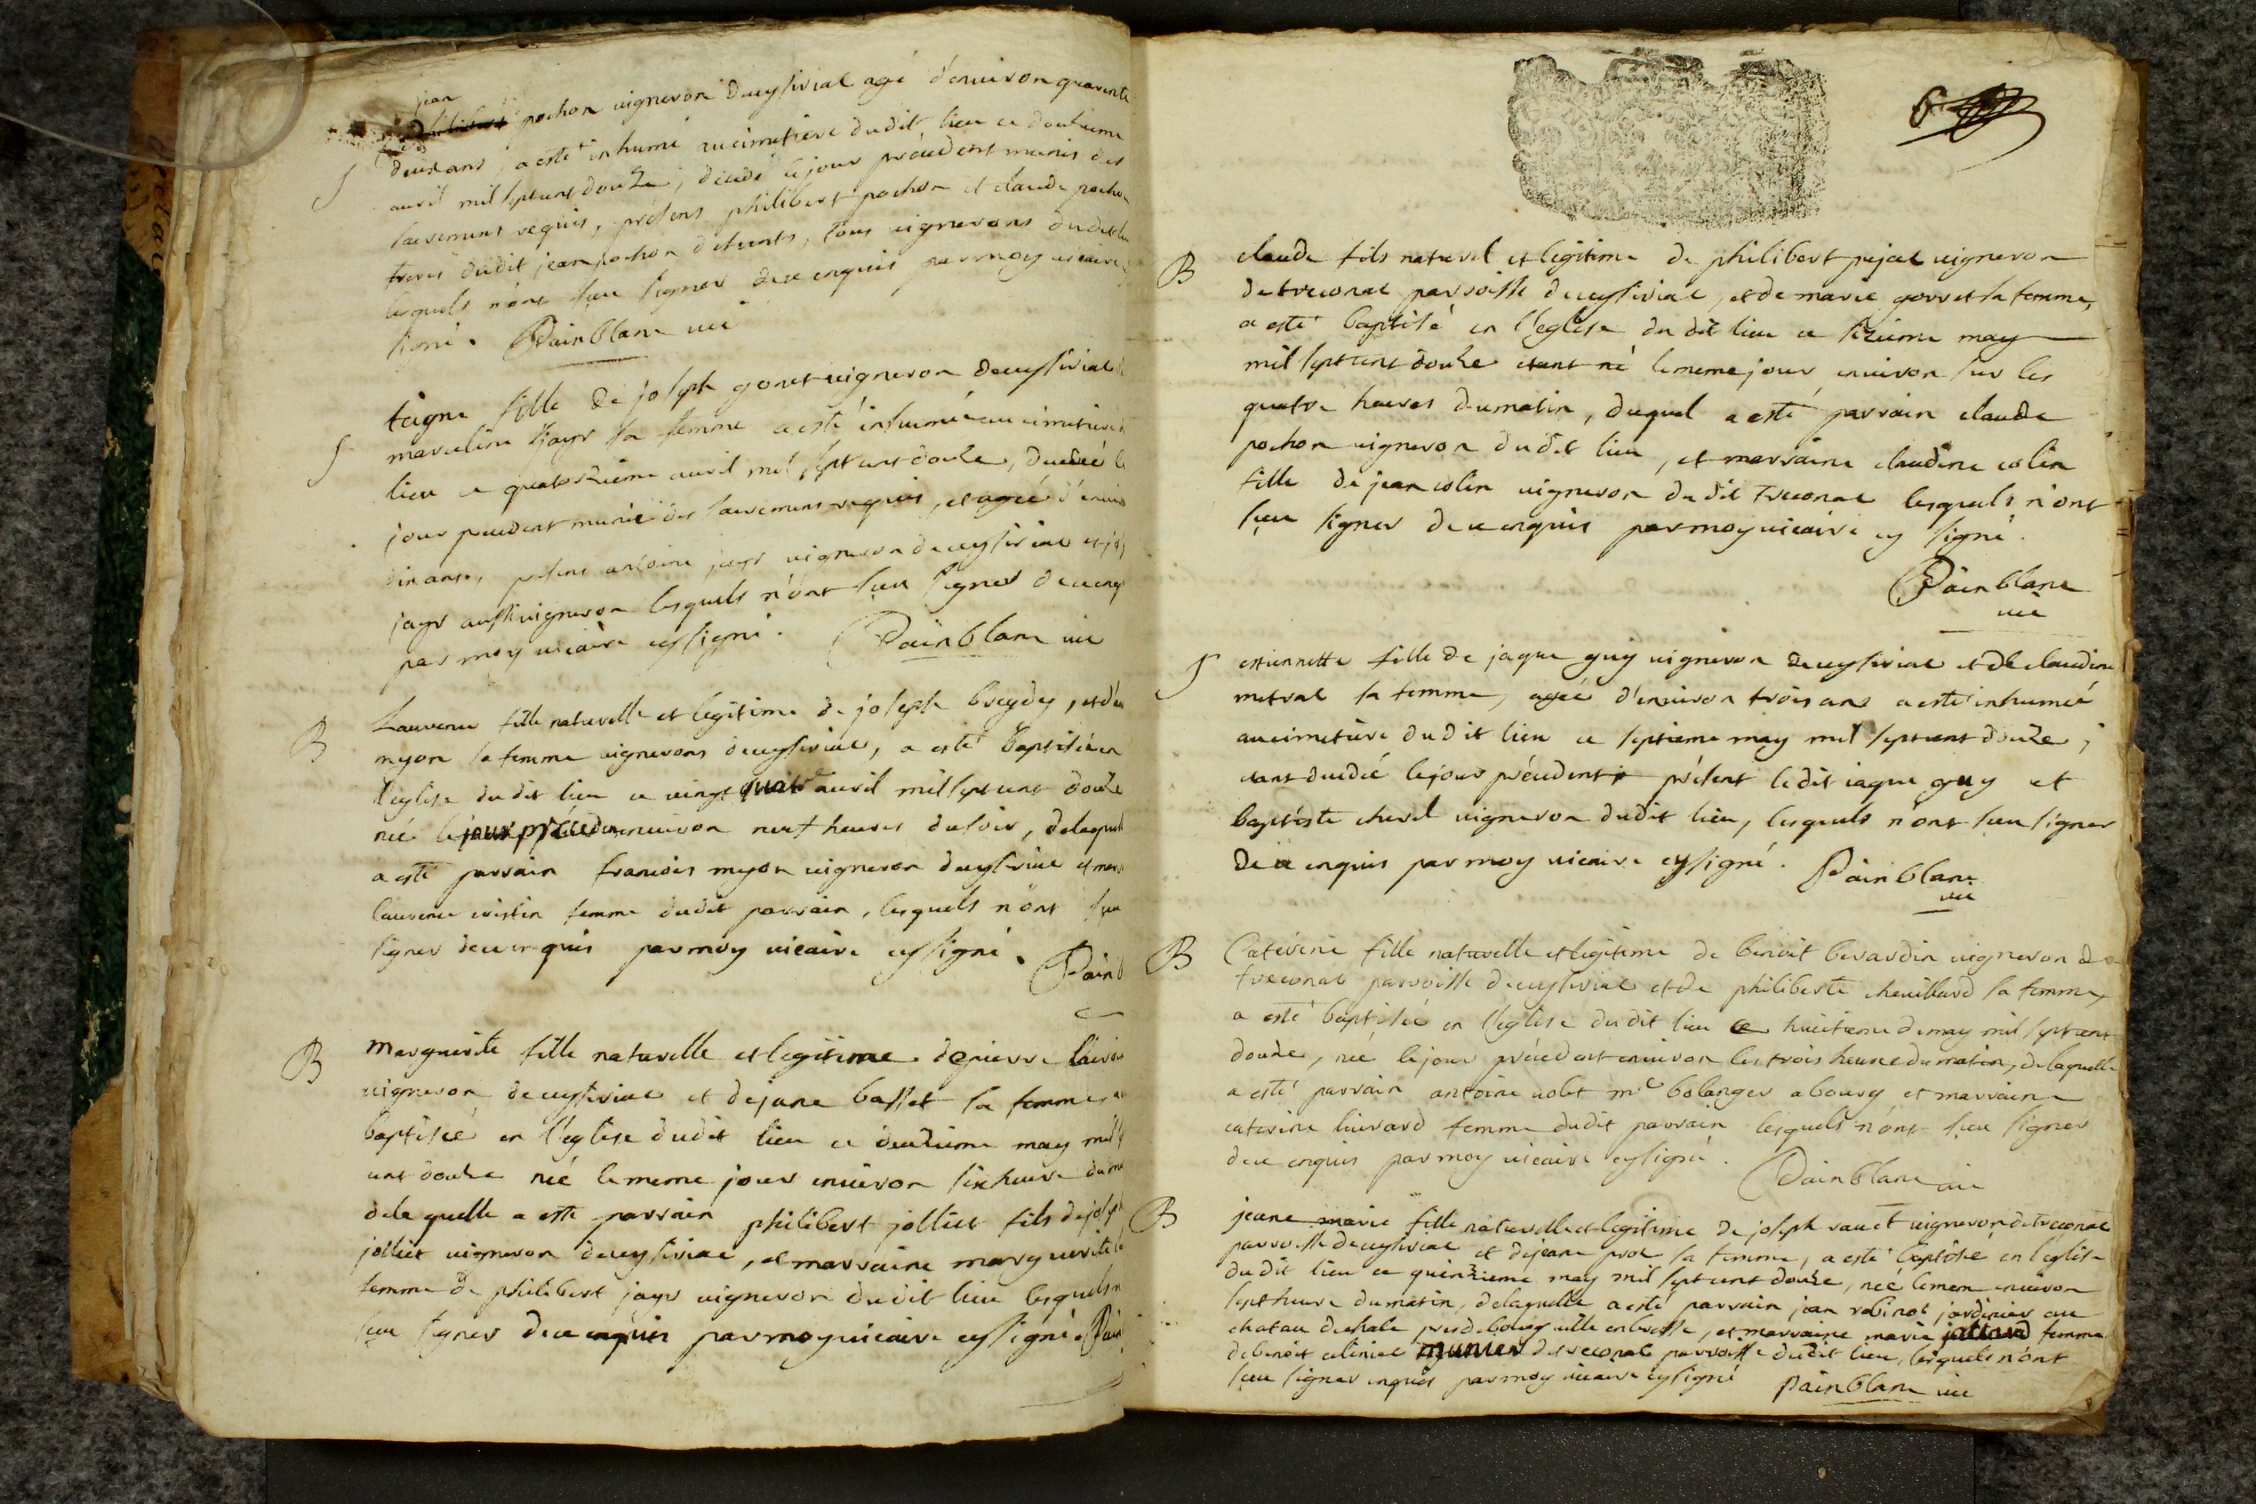 jean
philibert pochon vigneron deceysiriat agé d'environ quarente
deux ans, a esté inhumé aucimetiere dudit lieu ce douhieme
S
avril mil septcent douhe, décédé lejour précédent munis des
sacrements requis, présens philibert pochon et claude pochon
freres dudit jean pochon defunts, tous vignerons dudit lieu
lesquels n'ont sceu signer dece enquis parmoy vicaire
signé. Painblanc vic
fille de joseph goret vigneron deceysiriat
S
marceline jayr sa femme a esté inhumée au cimetiere
lieu ce quatorzieme avril mil septcent douhe, decedée le
jour precedent munie des sacrements requis, et agée d'environ
dix ans, présens antoine jayr vigneron deceysiriat et
jayr aussi vigneron lesquels n'ont sceu signer dece enquis
par moy vicaire cysigné. Painblanc vic
B
Laurence fille naturelle et legitime de joseph breydy, et de
myon sa femme vignerons deceysiriat, a esté baptisée en
l'eglise du dit lieu ce vingt quatre avril mil septcent douhe
née le jour precedent environ neuf heures dusoir, delaquelle
a esté parrain francois myon vigneron deceysiriat et mar
laurence cristin femme dudit parrain, lesquels n'ont sceu
signer dece enquis parmoy vicaire cysigné. Painb
B
marguerite fille naturelle et legitime depierre
vigneron deceysiriat et dejane basset sa femme, a
baptisée en l'eglise dudit lieu ce deuzieme may mil s
cent douhe née le meme jour environ six heure du ma
delaquelle a esté parrain philibert jolliet fils dejoseph
jolliet vigneron deceysiriat, et marraine marguerite
femme de philibert jayr vigneron dudit lieu lesquels n
sceu signer dece enquis parmoy vicaire cysigné. Pain
6
B
claude fils naturel et legitime de philibert pejat vigneron
detreconat parroisse deceysiriat, et de marie gorret sa femme,
a esté baptisé en l'eglise du dit lieu ce sizieme may
mil septcent douhe etant né le meme jour environ sur les
quatre heures dumatin, duquel a esté parrain claude
pochon vigneron dudit lieu, et marraine claudine colin
fille de jean colin vigneron du dit treconat lesquels n'ont
sceu signer dece enquis parmoy vicaire cy signé.
Painblanc
vic
S
estiennette fille de jaque guy vigneron deceysiriat et de claudine
metral sa femme, agée d'environ trois ans a esté inhumée
aucimetiere dudit lieu ce septieme may mil septcent douhe,
etant decedée lejour précedent présent ledit iaque guy et
baptiste chevel vigneron dudit lieu, lesquels n'ont sceu signer
de ce enquis parmoy vicaire cysigné. Painblanc
vic
B
Caterine fille naturelle et legitime de benoit berardin vigneron de
treconat parroisse deceysiriat et de philiberte chevillard sa femme,
a esté baptisée en l'eglise dudit lieu ce huictieme demay mil septcent
douhe, née lejour précedent environ les trois heure dumatin, delaquelle
a esté parrain antoine nolet me bolanger abourg et marraine
caterine livrard femme dudit parrain lesquels n'ont sceu signer
dece enquis parmoy vicaire cysigné. Painblanc vic
B
jeane marie fille naturelle et legitime de joseph ravet vigneron detreconat
parroisse deceysiriat et dejeane proz sa femme, a esté baptisée en l'eglise
du dit lieu ce quinzieme may mil septcent douhe, née lemem environ
sept heure dumatin, delaquelle a esté parrain jean robinot jardinier au
chatau dechale pres debourg ville en bresse, et marraine marie femme
debenoit munier detreconat parroisse dudit lieu, lesquels n'ont
sceu signer enquis parmoy vicaire cysigné Painblanc vic